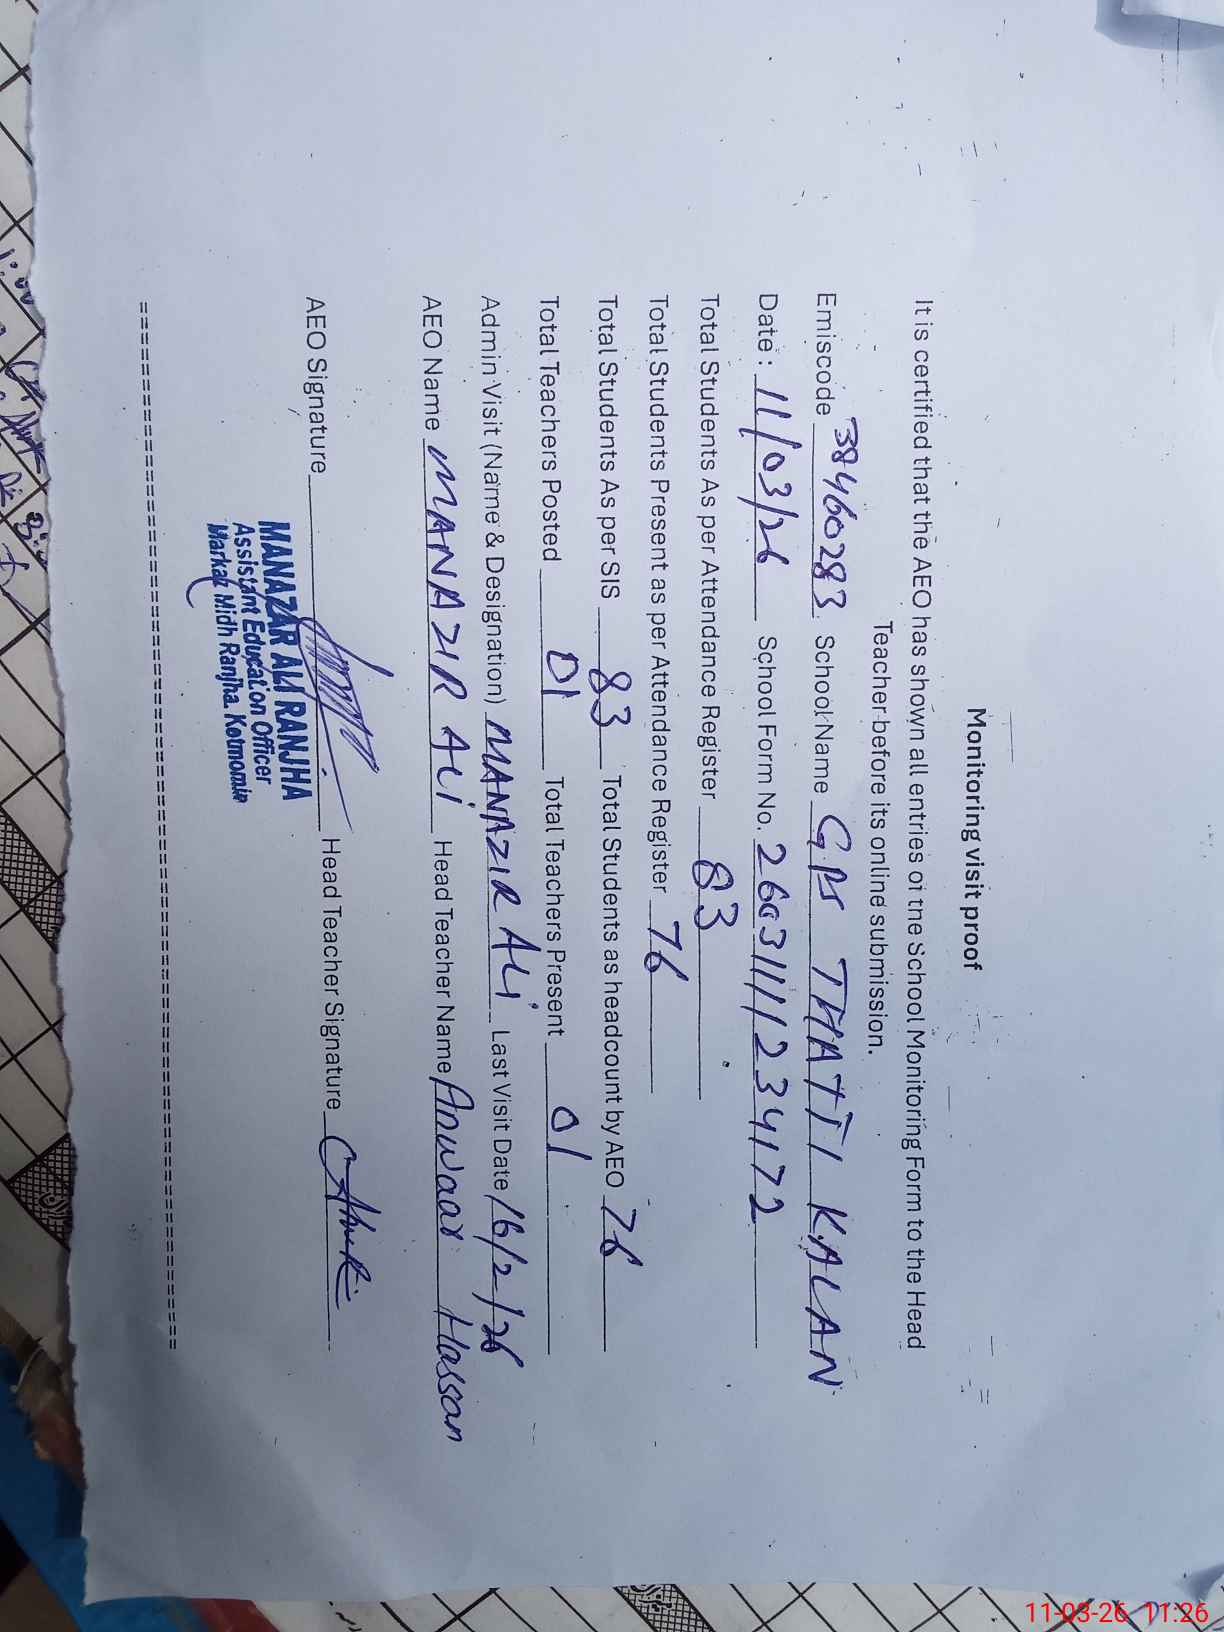 Monitoring visit proof
It is certified that the AEO has shown all entries of the School Monitoring Form to the Head
Teacher before its online submission.
Emiscode 38460283 School Name GPS THATTI KALAN
Date : 11/03/26 School Form No. 2603111234172
Total Students As per Attendance Register 83
Total Students Present as per Attendance Register 76
Total Students As per SIS 83 Total Students as headcount by AEO 76
Total Teachers Posted 01 Total Teachers Present 01
Admin Visit (Name & Designation) MANAZIR ALI Last Visit Date 16/2/26
AEO Name MANAZIR ALI Head Teacher Name Anwaar Hassan
AEO Signature Head Teacher Signature
MANAZAR ALI RANJHA
Assistant Education Officer
Markaz Midh Ranjha. Kotmomin
11-03-26 11:26